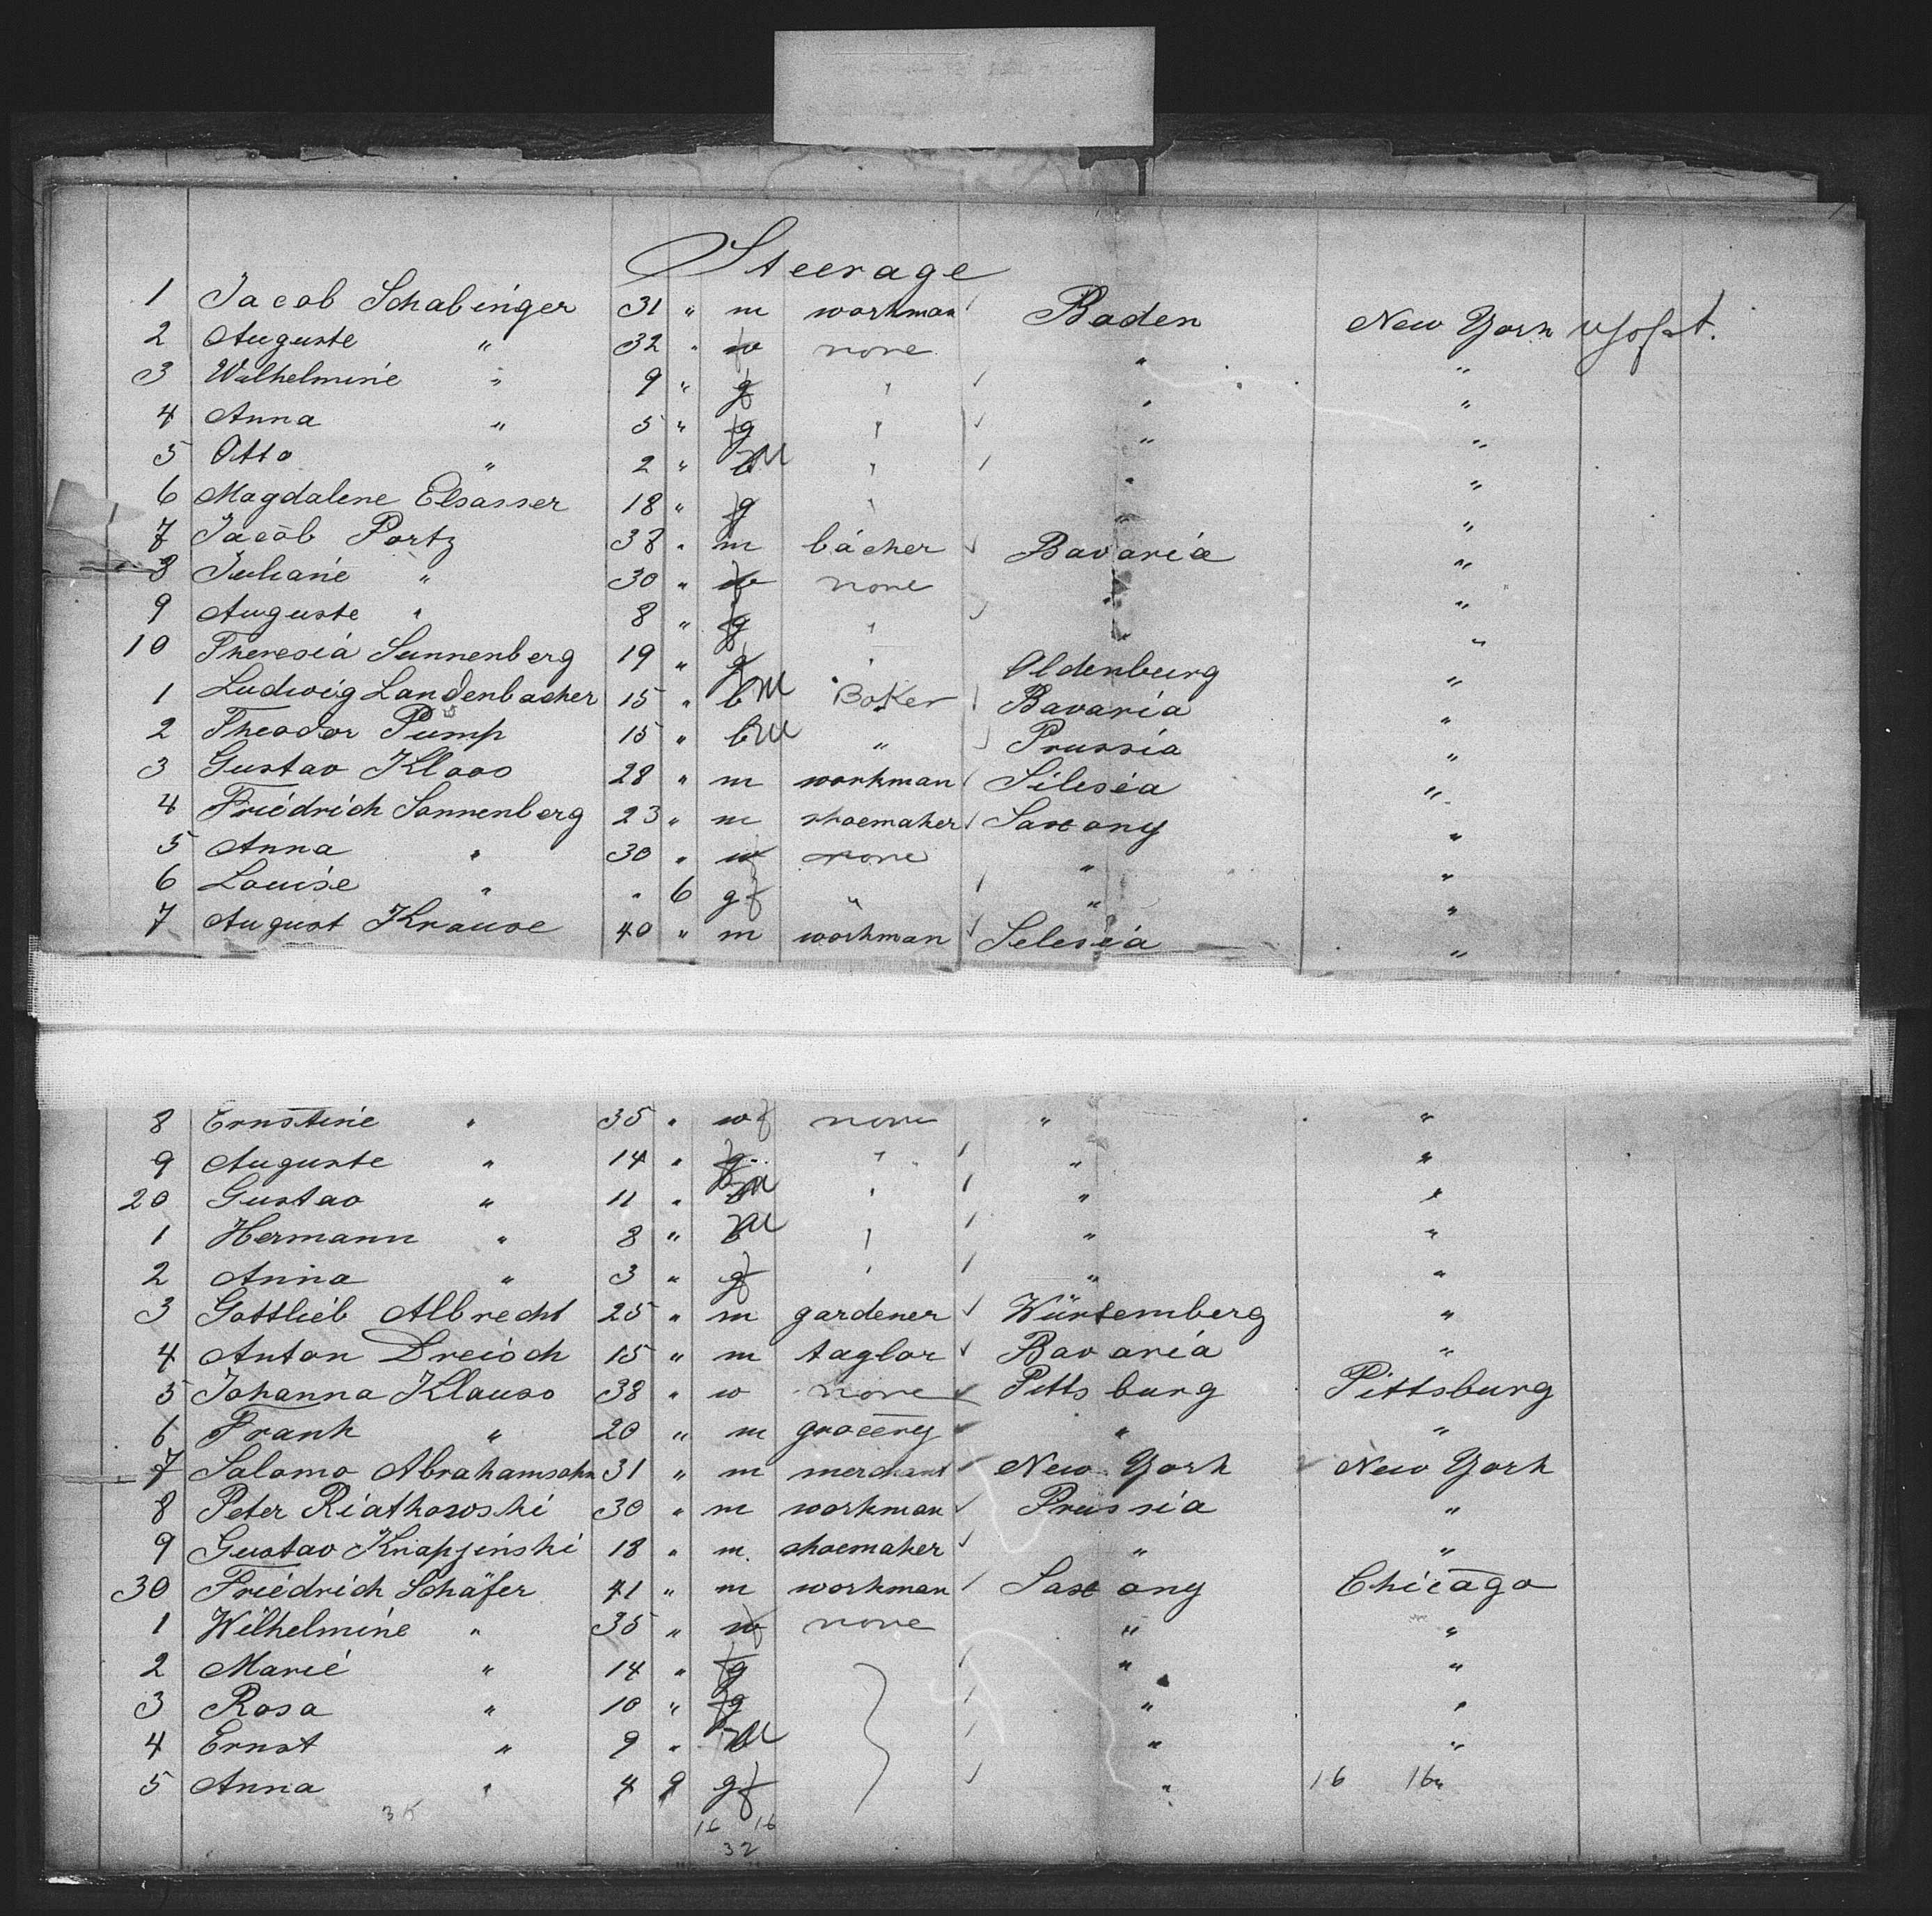 Steerage
1 Jacob Schabinger 31 " m workman Baden New York
2 Auguste " 32 " w none " "
3 Wilhelmine " 9 " g " " "
4 Anna " 5 " g " " "
5 Otto " 2 " M " " "
6 Magdalene Elsasser 18 " g " " "
7 Jacob Portz 38 " m bácher Bavaria "
8 Juliane " 30 " w none " "
9 Auguste " 8 " g " " "
10 Theresia Sunnenberg 19 " g " Oldenburg "
1 Ludwig Landenbacher 15 " b M Baker Bavaria "
2 Theodor Pump 15 " b M " Prussia "
3 Gustav Klaos 28 " m workman Silesia "
4 Friedrich Sonnenberg 23 " m shoemaker Saxony "
5 Anna " 30 " w none " "
6 Louise " " 6 g f " " "
7 August Krause 40 " m workman Selesia "
8 Ernstine " 35 " w f none " "
9 Auguste " 14 " g " " "
20 Gustav " 11 " M " " "
1 Hermann " 8 " b M " " "
2 Anna " 3 " g f " " "
3 Gottlieb Albrecht 25 " m gardener Würtemberg "
4 Anton Dreisch 15 " m taglor Bavaria "
5 Johanna Klauso 38 " w none Pittsburg Pittsburg
6 Frank " 20 " m grocery " "
7 Salomo Abrahamsohn 31 " m merchant New York New York
8 Peter Riathowski 30 " m workman Prussia "
9 Gustav Knapjinski 18 " m shoemaker " "
30 Friedrich Schäfer 41 " m workman Saxony Chicago
1 Wilhelmine " 35 " w none " "
2 Marie " 14 " g " "
3 Rosa " 10 " g " "
4 Ernst " 9 " M " "
5 Anna " 4 9 g f " 16 16 "
35 16 16
32